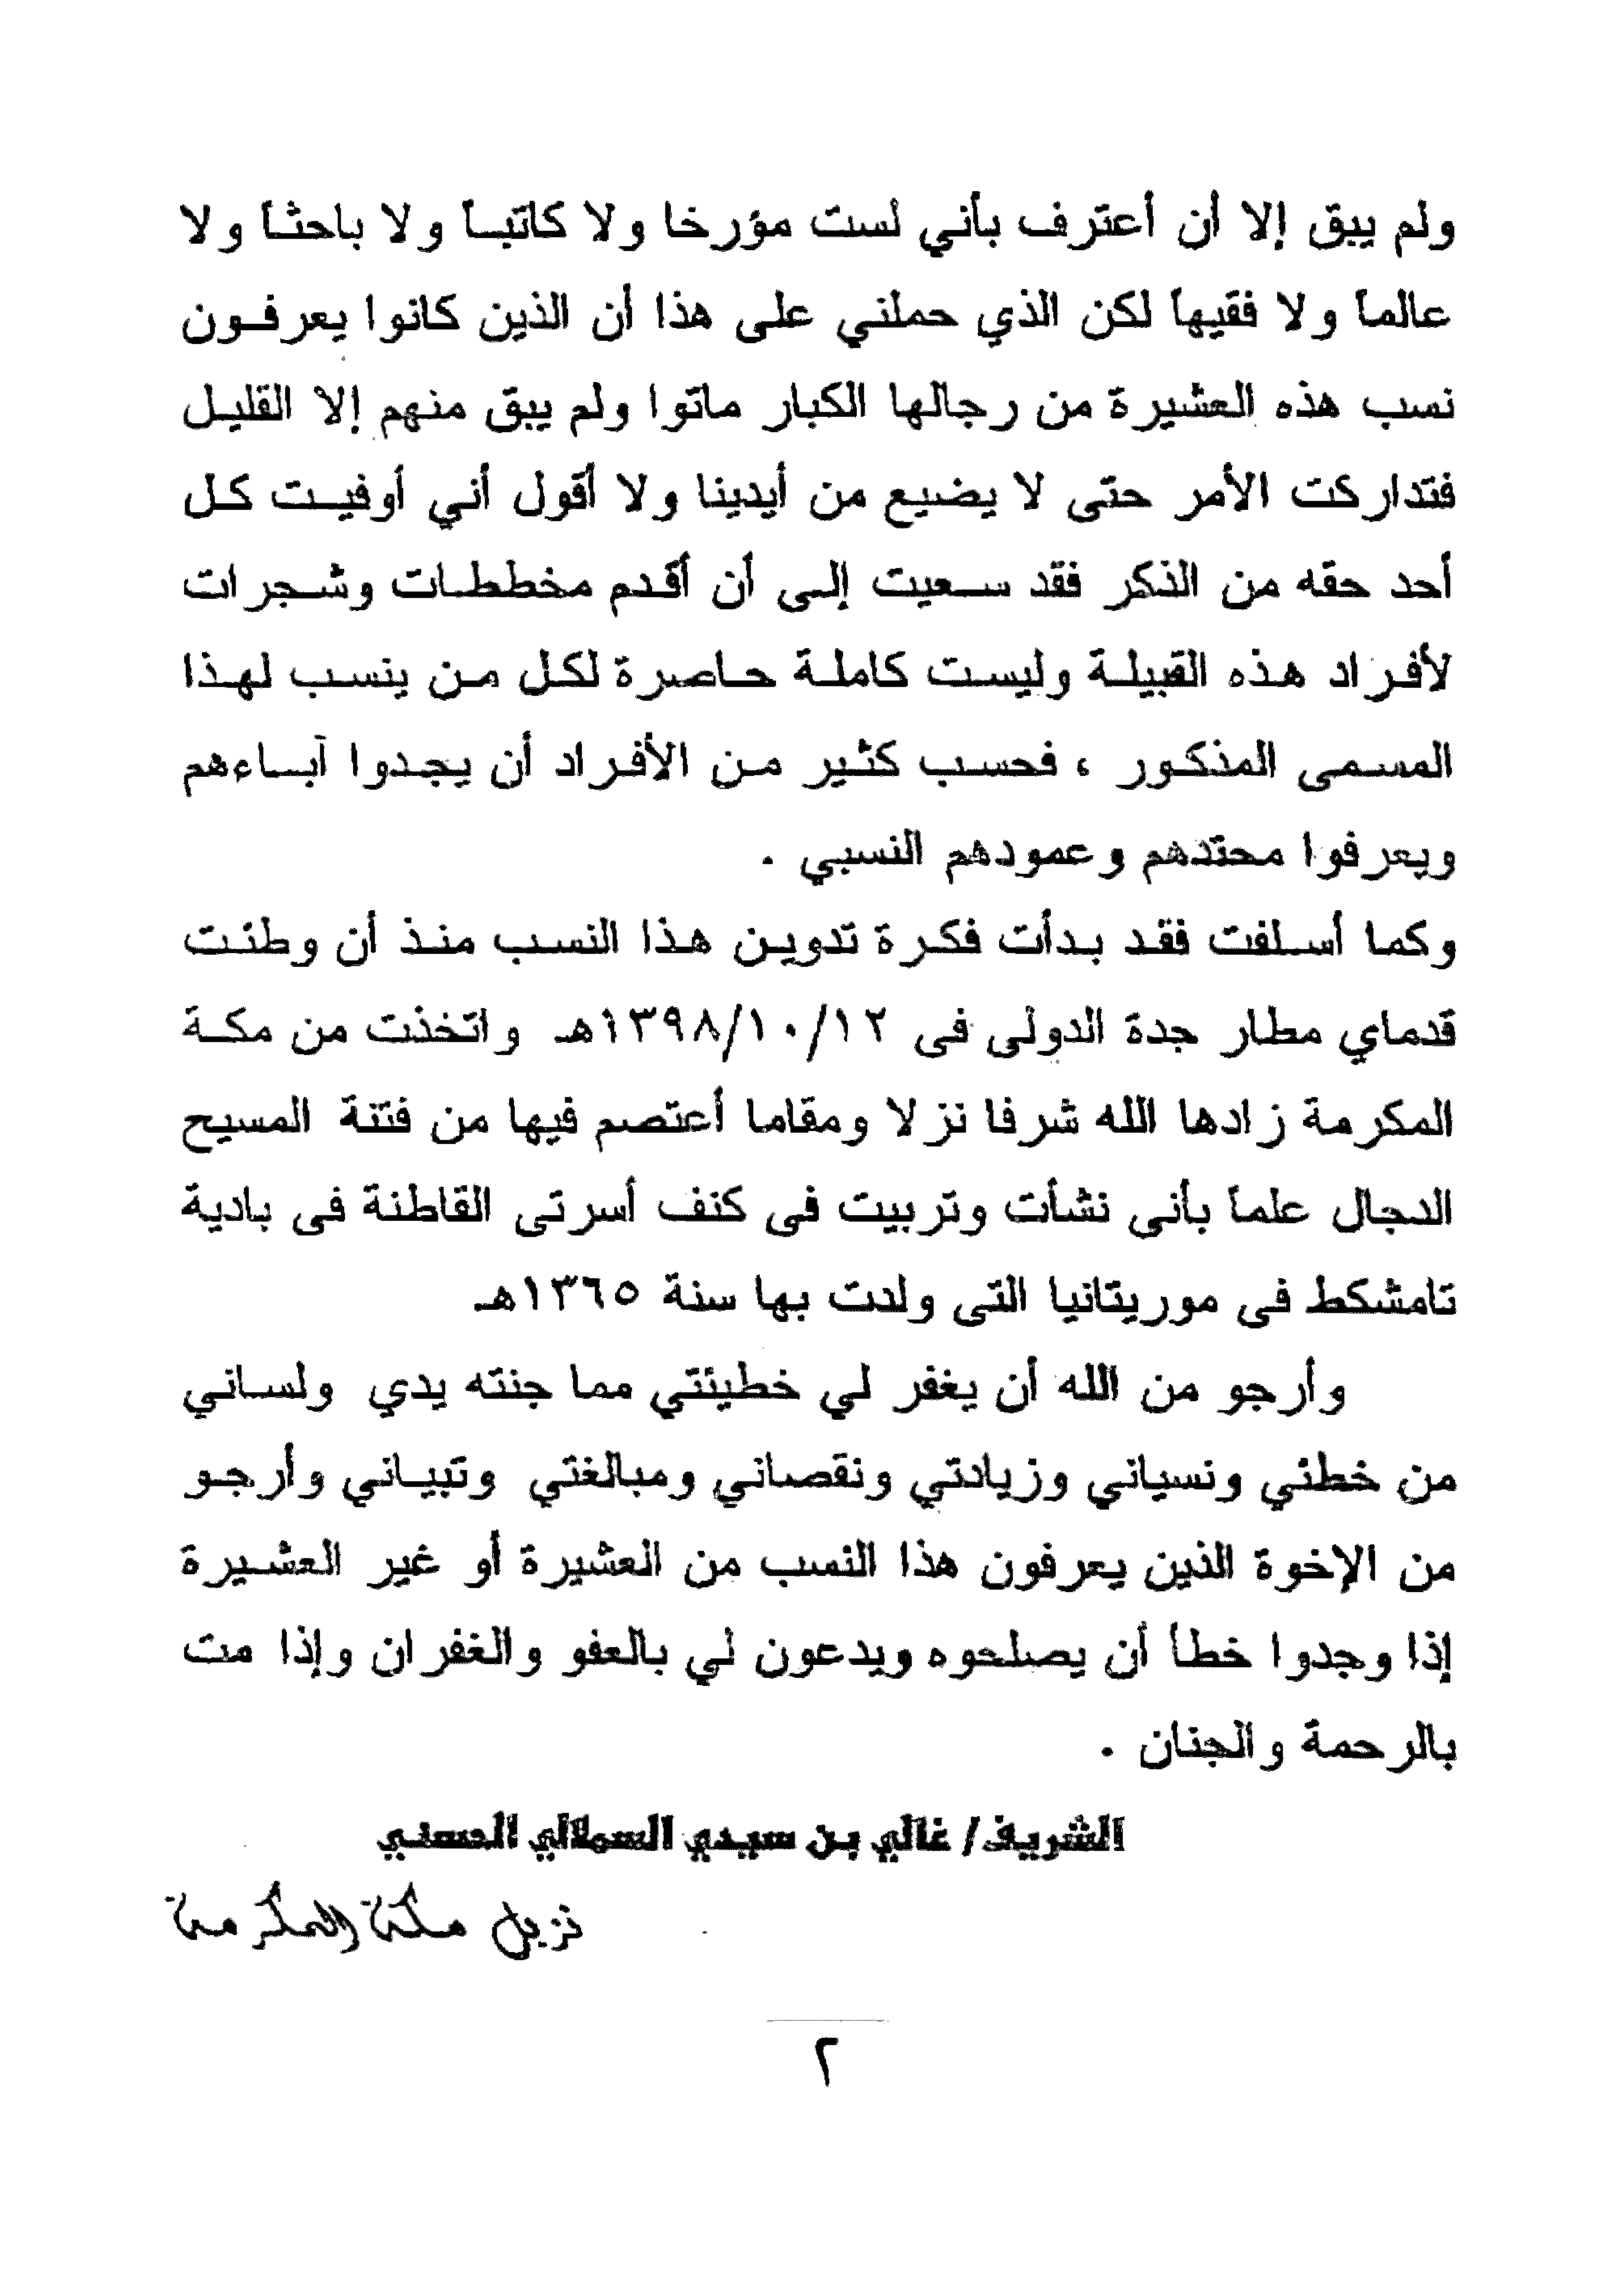 ولم يبق إلا أن أعترف بأني لست مؤرخا ولا كاتباً ولا باحثاً ولا
عالماً ولا فقيهاً لكن الذي حملني على هذا أن الذين كانوا يعرفون
نسب هذه العشيرة من رجالها الكبار ماتوا ولم يبق منهم إلا القليل
فتداركت الأمر حتى لا يضيع من أيدينا ولا أقول أني أوفيت كل
أحد حقه من الذكر فقد سعيت إلى أن أقدم مخططات وشجرات
لأفراد هذه القبيلة وليست كاملة حاصرة لكل من ينسب لهذا
المسمى المذكور ، فحسب كثير من الأفراد أن يجدوا آباءهم
ويعرفوا محتدهم وعمودهم النسبي .
وكما أسلفت فقد بدأت فكرة تدوين هذا النسب منذ أن وطئت
قدماي مطار جدة الدولى فى ١٣٩٨/١٠/١٢هـ واتخذت من مكة
المكرمة زادها الله شرفا نزلا ومقاما أعتصم فيها من فتنة المسيح
الدجال علماً بأنى نشأت وتربيت فى كنف أسرتى القاطنة فى بادية
تامشكط فى موريتانيا التى ولدت بها سنة ١٣٦٥هـ
وأرجو من الله أن يغفر لي خطيئتي مما جنته يدي ولساني
من خطئي ونسياني وزيادتي ونقصاني ومبالغتي وتبياني وأرجو
من الإخوة الذين يعرفون هذا النسب من العشيرة أو غير العشيرة
إذا وجدوا خطأ أن يصلحوه ويدعون لي بالعفو والغفران وإذا مت
بالرحمة والجنان .
الشريف/ غالي بن سيدي السملالي الحسني
نزيل مكة المكرمة
٢